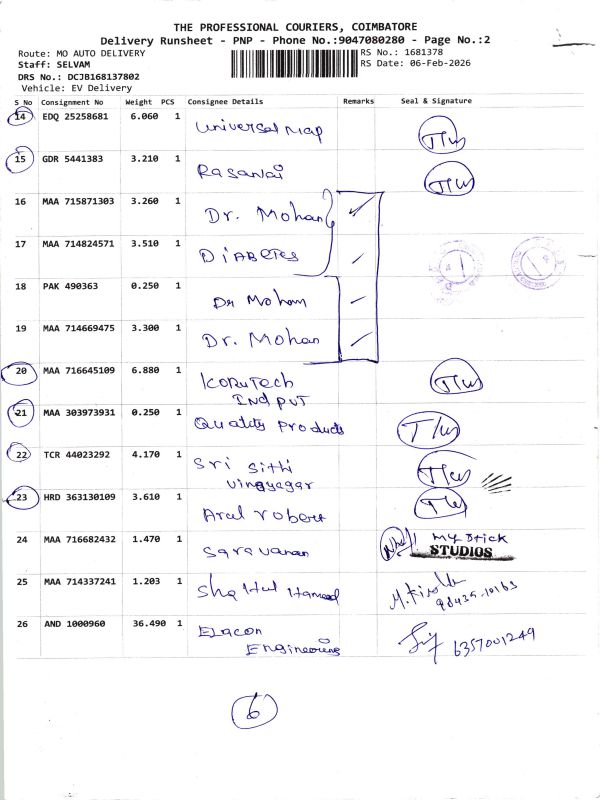 THE PROFESSIONAL COURIERS, COIMBATORE
Delivery Runsheet - PNP - Phone No.:9047080280 - Page No.:2
Route: MO AUTO DELIVERY
Staff: SELVAM
RS No.: 1681378
DRS No.: DCJB168137802
RS Date: 06-Feb-2026
Vehicle: EV Delivery
S No Consignment No Weight PCS Consignee Details Remarks Seal & Signature
14 EDQ 25258681 6.060 1 Universal Map T/w
15 GDR 5441383 3.210 1 Rasanai T/w
16 MAA 715871303 3.260 1 Dr. Mohan ✓
17 MAA 714824571 3.510 1 DiABETES ✓
18 PAK 490363 0.250 1 Dr Mohan ✓
19 MAA 714669475 3.300 1 Dr. Mohan ✓
20 MAA 716645109 6.880 1 KORUTECH T/w
IND PVT
21 MAA 303973931 0.250 1 Quality Products T/w
22 TCR 44023292 4.170 1 Sri Sithi T/w
vinayagar
23 HRD 363130109 3.610 1 Arul robert T/w
24 MAA 716682432 1.470 1 Saravanan My Brick
STUDIOS
25 MAA 714337241 1.203 1 Shahul Hameed
98435-10163
26 AND 1000960 36.490 1 Elacon
Engineering 6357001249
6